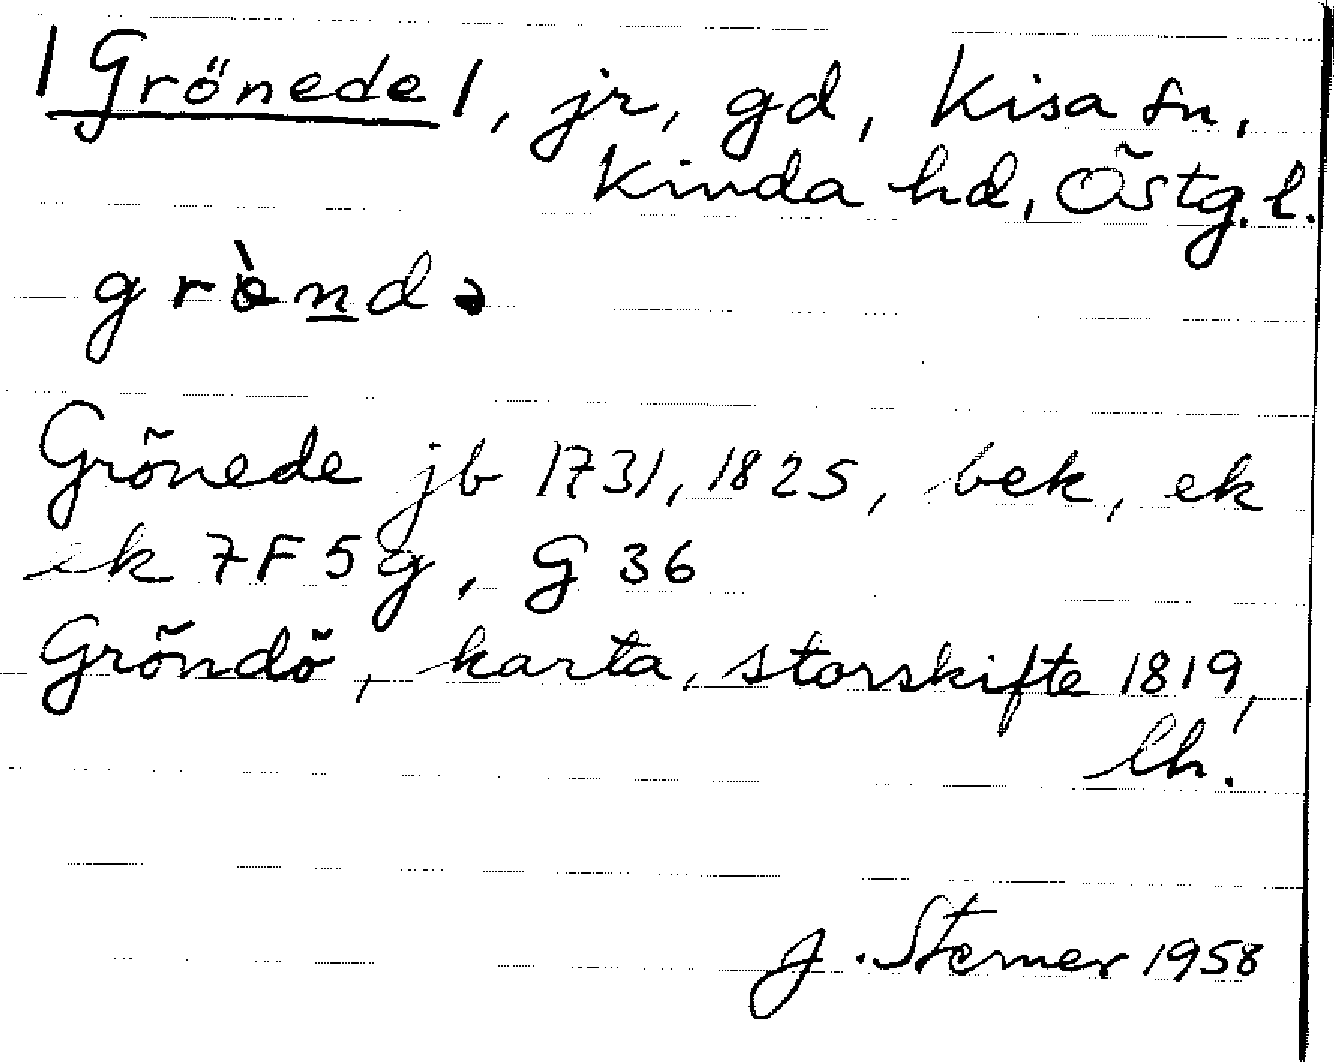 /Grönede/, jr, gd, Kisa sn,
Kinda hd, Östg. l.
grò̱nde
Grönede jb 1731, 1825, bek, ek
ek 7F 5g, G 36
Gröndö, karta, storskifte 1819,
lh.
J. Sterner 1958